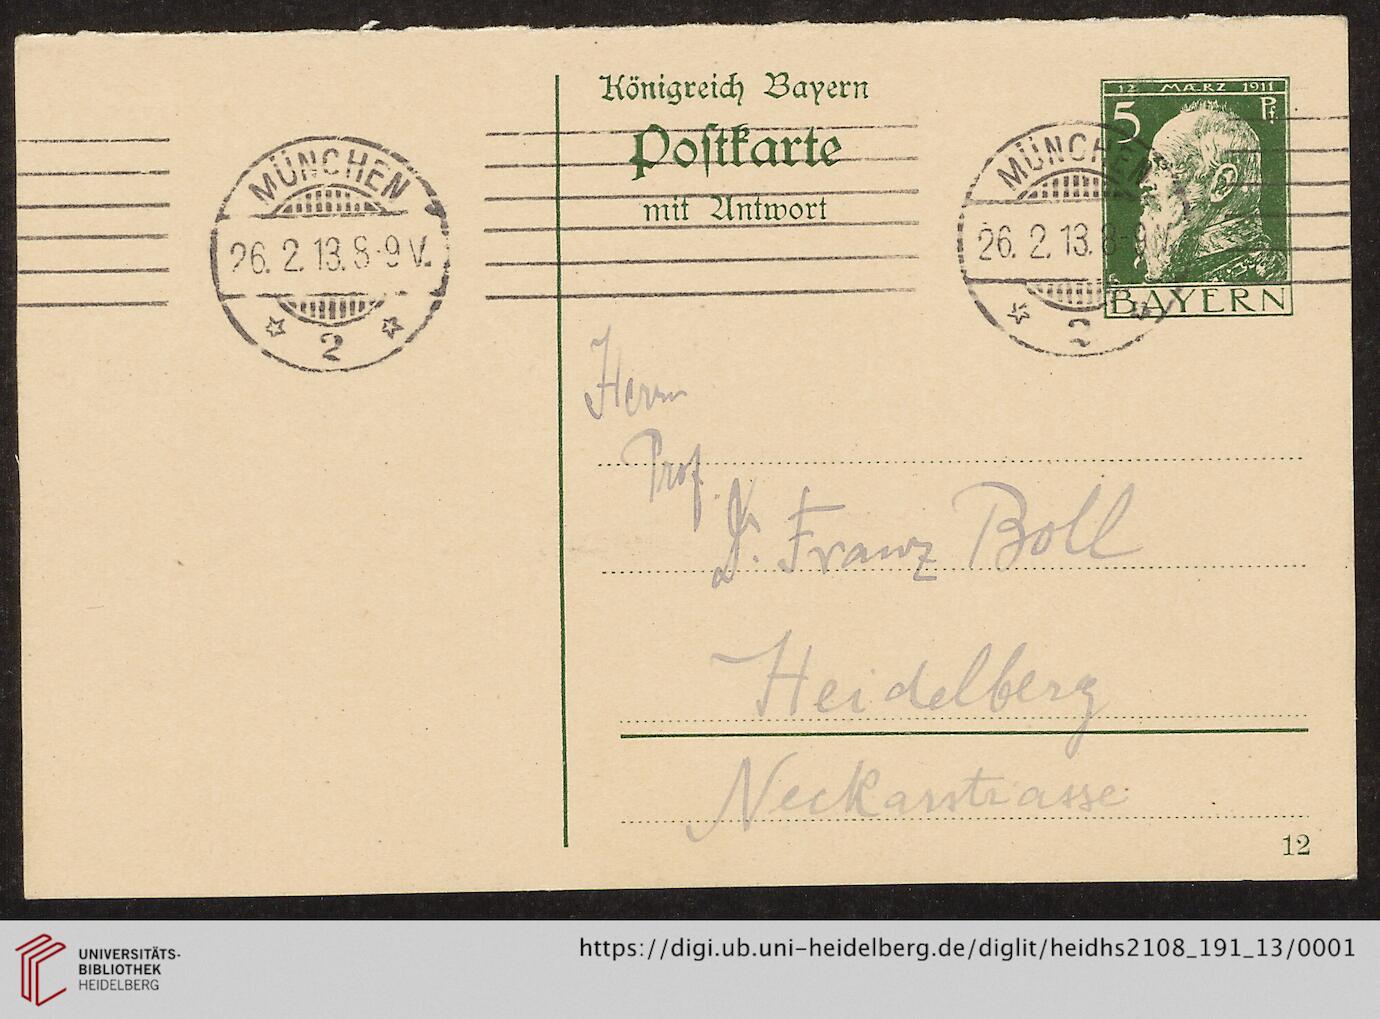 Königreich Bayern
Postkarte
mit Antwort
12 MÆRZ 1911
5 Pf.
BAYERN
MÜNCHEN
26. 2. 13. 8-9 V.
2
MÜNCHEN
26. 2. 13. 8-9 V.
2
Herrn
Prof.
Dr. Franz Boll
Heidelberg
Neckarstrasse
12
UNIVERSITÄTS-
BIBLIOTHEK
HEIDELBERG
https://digi.ub.uni-heidelberg.de/diglit/heidhs2108_191_13/0001